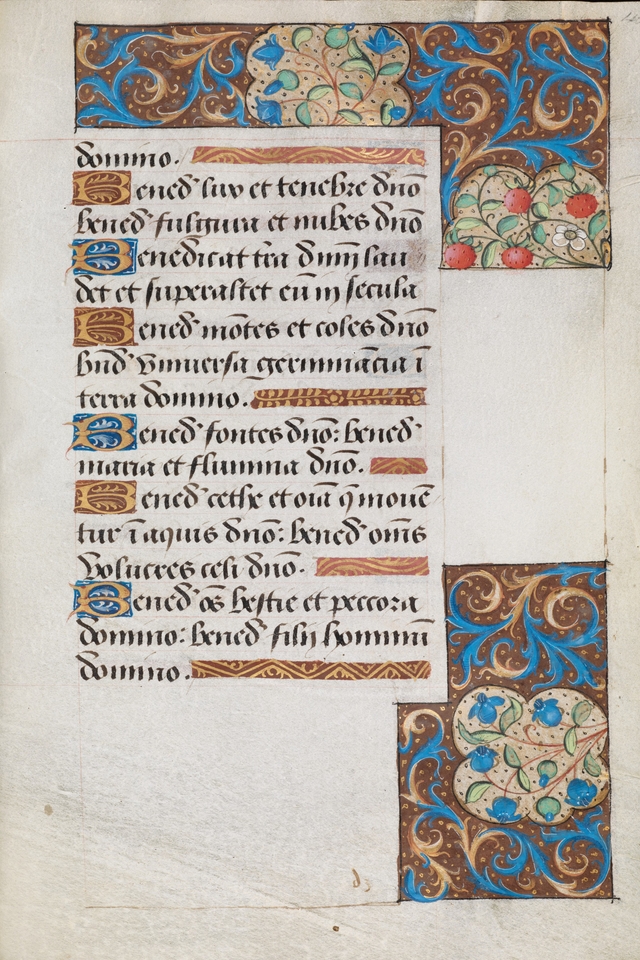 domino.
Bened̄ lux et tenebre dn̄o
bened̄ fulgura et nubes dn̄o
Benedicat tr̄a dnm̄ lau
det et superaltet eū in secula
Bened̄ mōtes et coles dn̄o
bnd̄ vniuersa germinācia ī
terra domino.
Bened̄ fontes dn̄o: bened̄
maria et flumina dn̄o.
Bened̄ cethe et oīa q̄ mouē
tur ī aquis dn̄o: bened̄ om̄s
volucres celi dn̄o.
Bened̄ oēs bestie et peccora
domino: bened̄ filij hominū
domino.